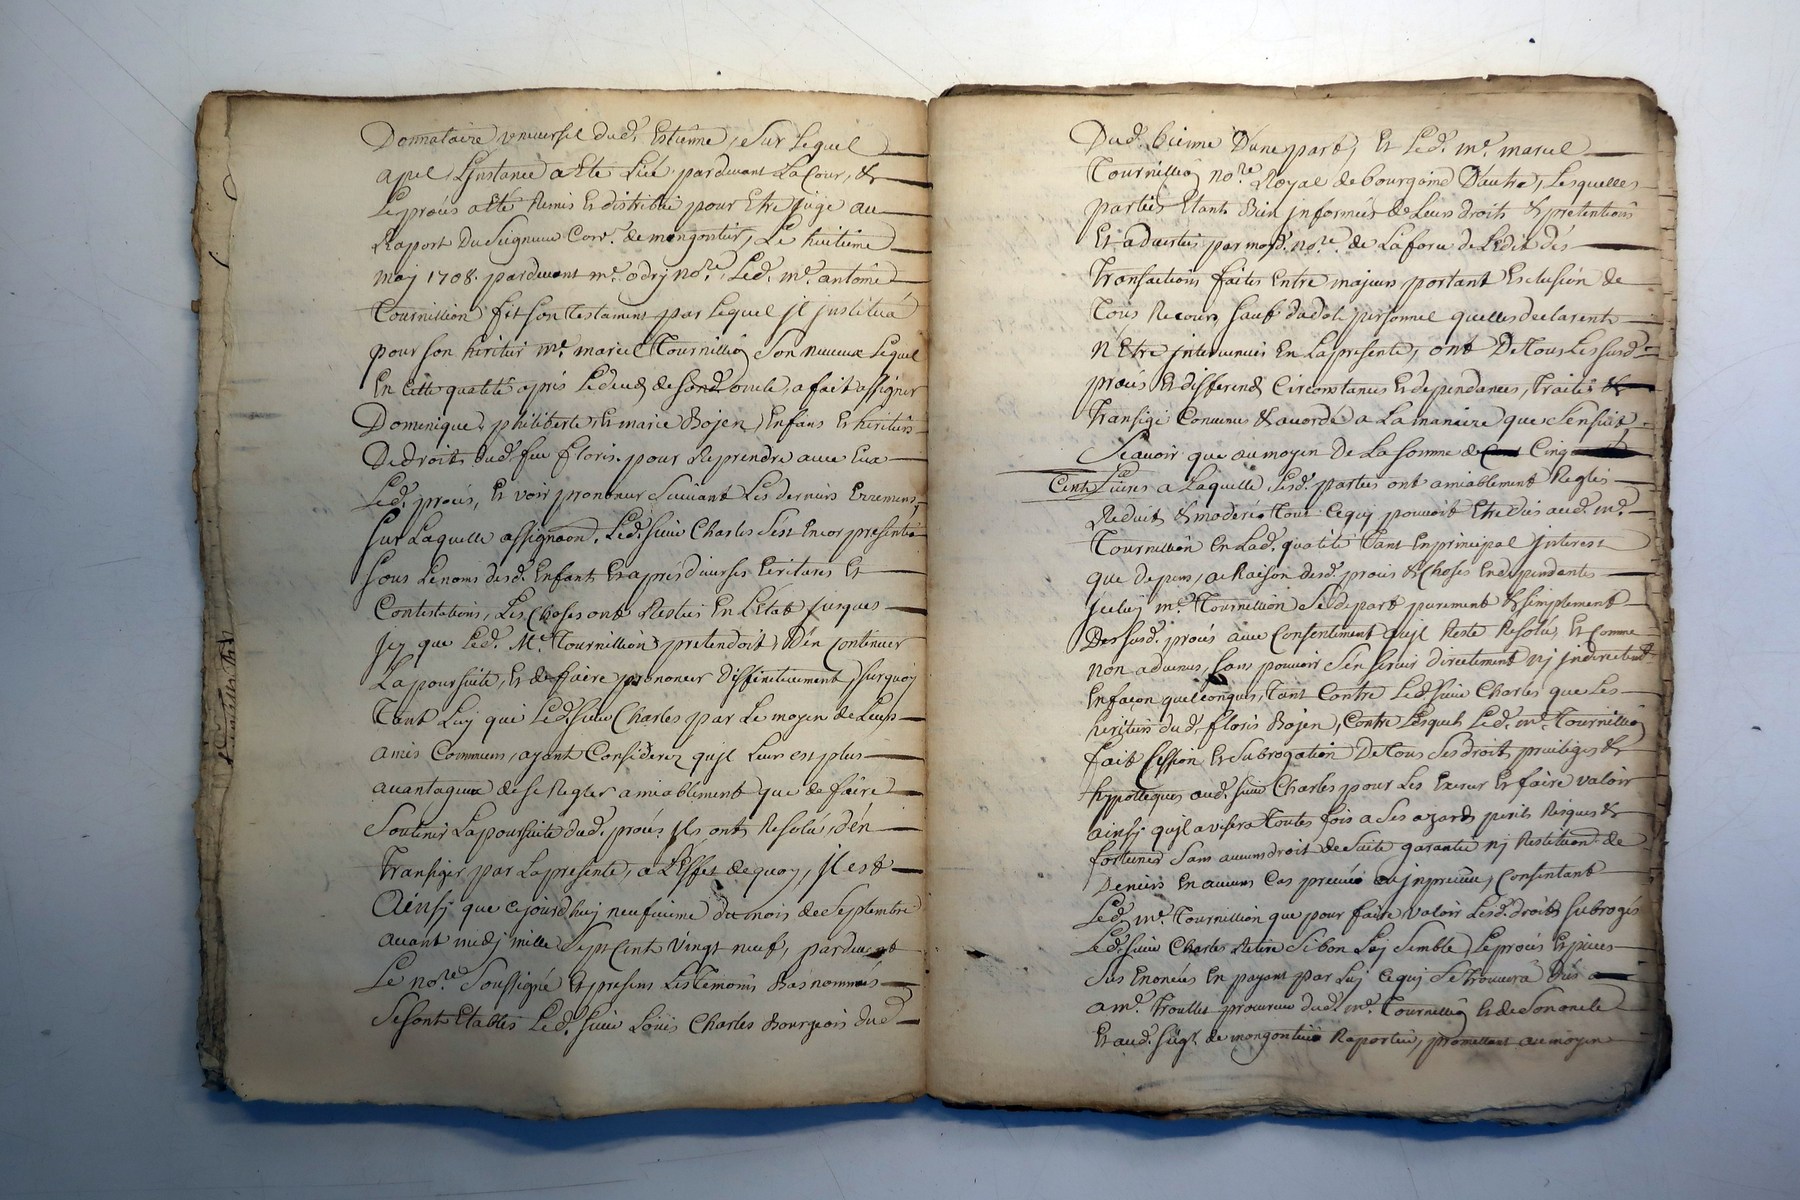 Donnataire vniuersel dud. Estienne, Sur Lequel
apel L'jnstance a Eté Liée pardeuant La Cour, &
Le procés a Eté Remis Et distribué pour Etre jugé au
Raport Du Seigneur Con.r de mongontier, Le huitieme
maj 1708. pardeuant m.e odrj no.re, Led. m.e antoine
Tournillion fit son Testament par Lequel jl jnstitua
pour son heritier m.e marcel Tournillion Son neueux Lequel
En Cette qualité aprés Le deces de Sond. oncle, a fait assigner
Domenique, philiberte, Et marie Bojen, Enfans Et heritiers
De droit dud. feu floris, pour Reprendre auec Eux
Led. procés, Et voir prononcer Suiuant Les derniers Erremens,
Sur Laquelle assignaon. Led. Sieur Charles S'est Encor presenté
Sous Le nom desd. Enfants Et aprés diuerses Ecritures Et
Contestations, Les Choses ont Restées En L'etat jusques
Jcy que Led. M.e Tournillion pretendoit D'en Continuer
La poursuite, Et de faire prononcer diffinitiuement, surquoy
Tant Luj que Led. Sieur Charles par Le moyen de Leurs
amis Communs, ayant Considerez qu'jl Leur est plus
auantageux de se Regler amiablement que de faire
Soutenir La poursuite dud. procés jls ont Resolu, d'en
Transiger par La presente, a L'effet de quoy, jl est
Ainsj que Cejourd'huj neufuieme du mois de Septembre
auant midj mille Sept Cent Vingt neuf, pardeuant
Le no.re Soussigné Et presens Les Temoins Bas nommés
Se sont Etablis Led. Sieur Louis Charles Bourgeois dud.
Dud. Vienne D'une part, Et Led. m.e marcel
Tournillion no.re Royal de bourgoin D'autre, Lesquelles
parties Etants Bien jnformées de Leurs droits & pretentions
Et aduerties par moyd. no.re de La force de L'edit des
Transactions faites Entre majeurs portant Exclusion de
Tous Recours Sauf du dol personnel qu'elles declarent
N'Etre jnteruenues En La presente, ont De Tous Les susd.
procés Et differends Circonstances Et dependances, Traité &
Transigé Conuenu & accordé a La maniere que s'ensuit,
Scauoir que au moyen De La Somme de Cinq
Cents Liures a Laquelle Lesd. parties ont amiablement Reglés
Reduit & moderés Tout Cequj pouuoit Etre dus aud. m.e
Tournillion En Lad. qualité Tant En principal jnterest
que depens, a Raison desd. procés & Choses En dependentes
Jceluj m.e Tournillion Se depart purement & simplement
Des susd. procés auec Consentement qu'jl Reste Resolu, Et Comme
non aduenus, Sans pouuoir S'en Seruir directement nj jndirectemt.
En façon quelconques, Tant Contre Led. Sieur Charles que Les
heritiers dud. floris Bojen, Contre Lesquels Led. m.e Tournillion
fait Cession Et Subrogation De Tous Ses droits priuileges &
hypotteques aud. Sieur Charles pour Les Exercer Et faire valoir
ainsj qu'jl auisera Toutes fois a Ses azards perils Risques &
fortunes Sans aucun droit de Suite garantie nj Restitution de
Deniers En aucuns Cas preueu ou jnpreueu, Consentant
Led. m.e Tournillion que pour faire valoir Lesd. droits Subrogés
Led. Sieur Charles Retire Si bon Luj Semble Le procés Et pieces
Sus Enoncées En payant par Luj Cequj Se Trouuera Dus a
a m.e Trouillet procureur dud. m.e Tournillion Et de Son oncle
Et aud. Sieg.r de mongontier Raporteur, promettant au moyen